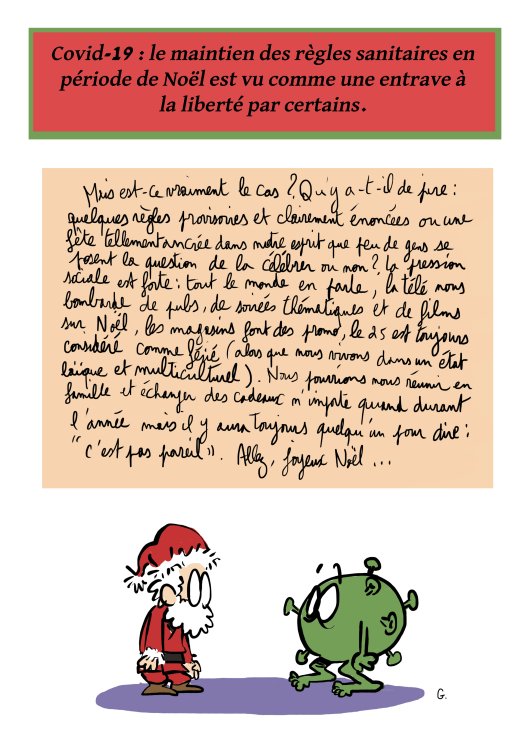 Covid-19 : le maintien des règles sanitaires en
période de Noël est vu comme une entrave à
la liberté par certains.
Mais est-ce vraiment le cas ? Qu'y a-t-il de pire :
quelques règles provisoires et clairement énoncées ou une
fête tellement ancrée dans notre esprit que peu de gens se
posent la question de la célébrer ou non ? La pression
sociale est forte : tout le monde en parle, la télé nous
bombarde de pubs, de soirées thématiques et de films
sur Noël, les magasins font des promo, le 25 est toujours
considéré comme férié (alors que nous vivons dans un état
laïque et multiculturel). Nous pourrions nous réunir en
famille et échanger des cadeaux n'importe quand durant
l'année mais il y aura toujours quelqu'un pour dire :
"c'est pas pareil". Allez, joyeux Noël ...
G.